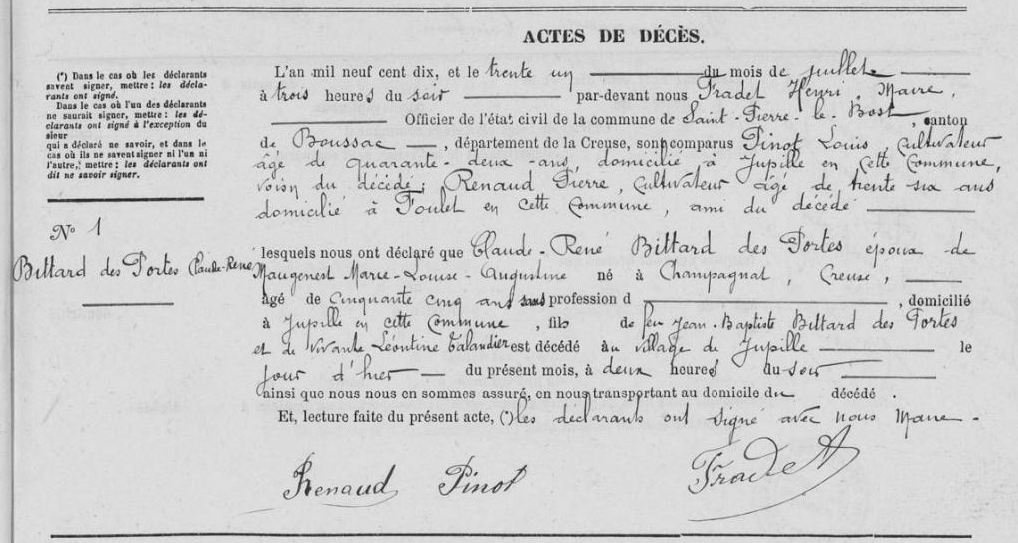 ACTES DE DÉCÈS.
(*) Dans le cas où les déclarants
savent signer, mettre : les décla-
rants ont signé.
Dans le cas où l'un des déclarants
ne saurait signer, mettre : les dé-
clarants ont signé à l'exception du
sieur
qui a déclaré ne savoir, et dans le
cas où ils ne savent signer ni l'un ni
l'autre, mettre ; les déclarants ont
dit ne savoir signer.
N° 1
Bittard des Portes Claude-René
L'an mil neuf cent dix, et le trente un du mois de juillet
à trois heures du soir par-devant nous Fradet Henri, Maire,
Officier de l'état civil de la commune de Saint-Pierre-le-Bost, canton
de Boussac, département de la Creuse, sont comparus Pinot Louis, Cultivateur
âgé de quarante-deux-ans domicilié à Jupille en cette Commune,
voisin du décédé; Renaud Pierre, cultivateur âgé de trente six ans
domicilié à Poulet en cette Commune, ami du décédé
lesquels nous ont déclaré que Claude-René Bittard des Portes époux de
Maugenest Marie-Louise-Augustine né à Champagnat, Creuse,
âgé de Cinquante cinq ans sans profession d , domicilié
à Jupille en cette Commune, fils de feu Jean-Baptiste Bittard des Portes
et de vivante Léontine Talandier est décédé au village de Jupille le
jour d'hier du présent mois, à deux heures du soir
ainsi que nous nous en sommes assuré, en nous transportant au domicile du décédé.
Et, lecture faite du présent acte, (*) les déclarants ont signé avec nous Maire.
Renaud Pinot Fradet